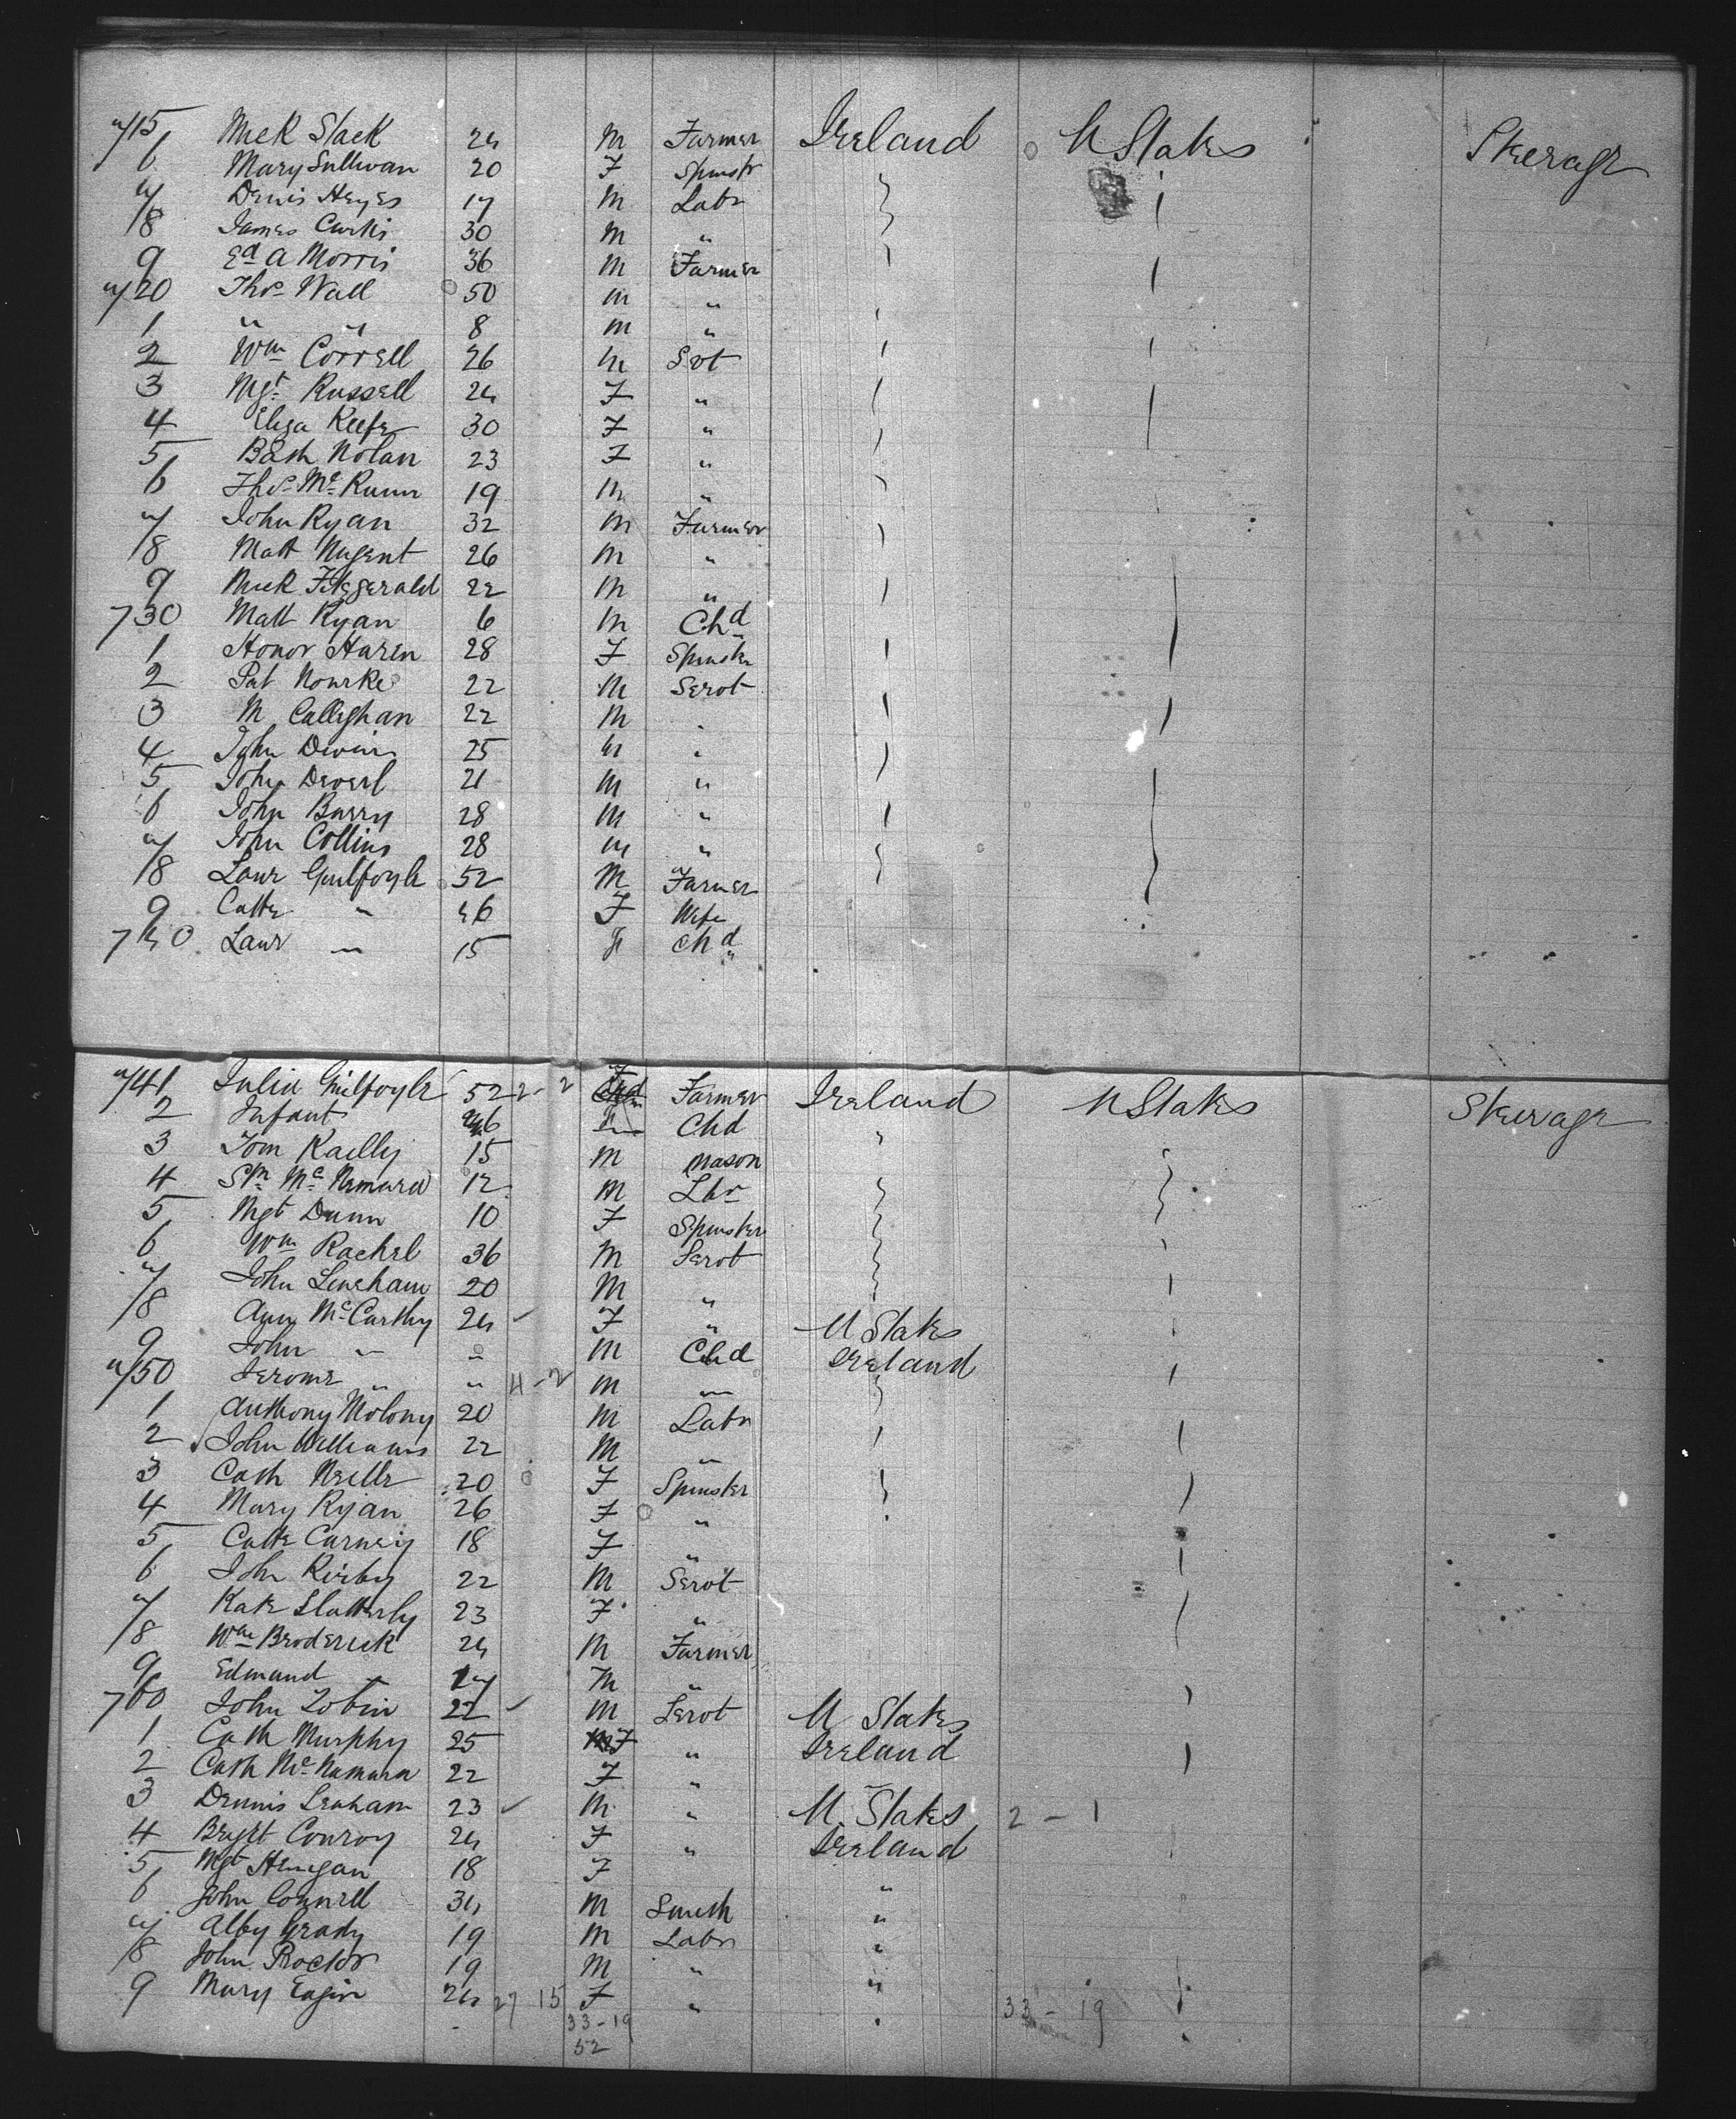 715 Mick Slack 24 M Farmer Ireland U States Steerage
6 Mary Sullivan 20 F Spinstr
7 Denis Heyes 17 M Labr
18 James Curtis 30 M "
9 Ed A Morris 36 M Farmer
720 Thos Wall 50 M "
1 " " 8 M "
2 Wm Correll 26 M Svt
3 Mgt Russell 24 F "
4 Eliza Keefe 30 F "
5 Bath Nolan 23 F "
6 Thos Mc Kunn 19 M "
7 John Ryan 32 M Farmer
18 Matt Nugent 26 M "
9 Mick Fitzgerald 22 M "
730 Matt Ryan 6 M Chd
1 Honor Haren 28 F Spinster
2 Pat Rourke 22 M Servt
3 M Callighan 22 M "
4 John 25 M "
5 John 21 M "
6 John Barry 28 M "
7 John Collins 28 M "
18 Lawr Guilfoyle 52 M Farmer
9 Cathe " 46 F Wife
740 Lawr " 15 Chd
741 Julia Guilfoyle 52 2-2 F Farmer Ireland U States Steerage
2 Infant Chd "
3 Tom Kailly 15 M Mason
4 Mc Namara 12 M Lbr
5 Mgt Dunn 10 F Spinster
6 Wm Rachel 36 M Servt
7 John Lineham 20 M "
18 Ann McCarthy 24 F " U States
9 John " " M Chd Ireland
750 Jerome " " 4-2 M "
1 Anthony Molony 20 M Labr
2 John Williams 22 M "
3 Cath Neille 20 F Spinster
4 Mary Ryan 26 F "
5 Cathe Carney 18 F "
6 John Kirby 22 M Servt
7 Kate Slatterly 23 F "
18 Wm Broderick 24 M Farmer
9 Edmund " 17 M "
760 John Tobin 22 M Servt U States
1 Cath Murphy 25 F " Ireland
2 Cath McNamara 22 F "
3 Dennis Lenham 23 M " U. States 2 - 1
4 Bryt Conroy 24 F " Ireland
5 Mgt Henegan 18 F "
6 John Connell 34 M Smith "
7 Alby Grady 19 M Labr "
18 John Proctor 19 M " "
9 Mary Eagin 24 27 15 F " 33 - 19
33-19
52